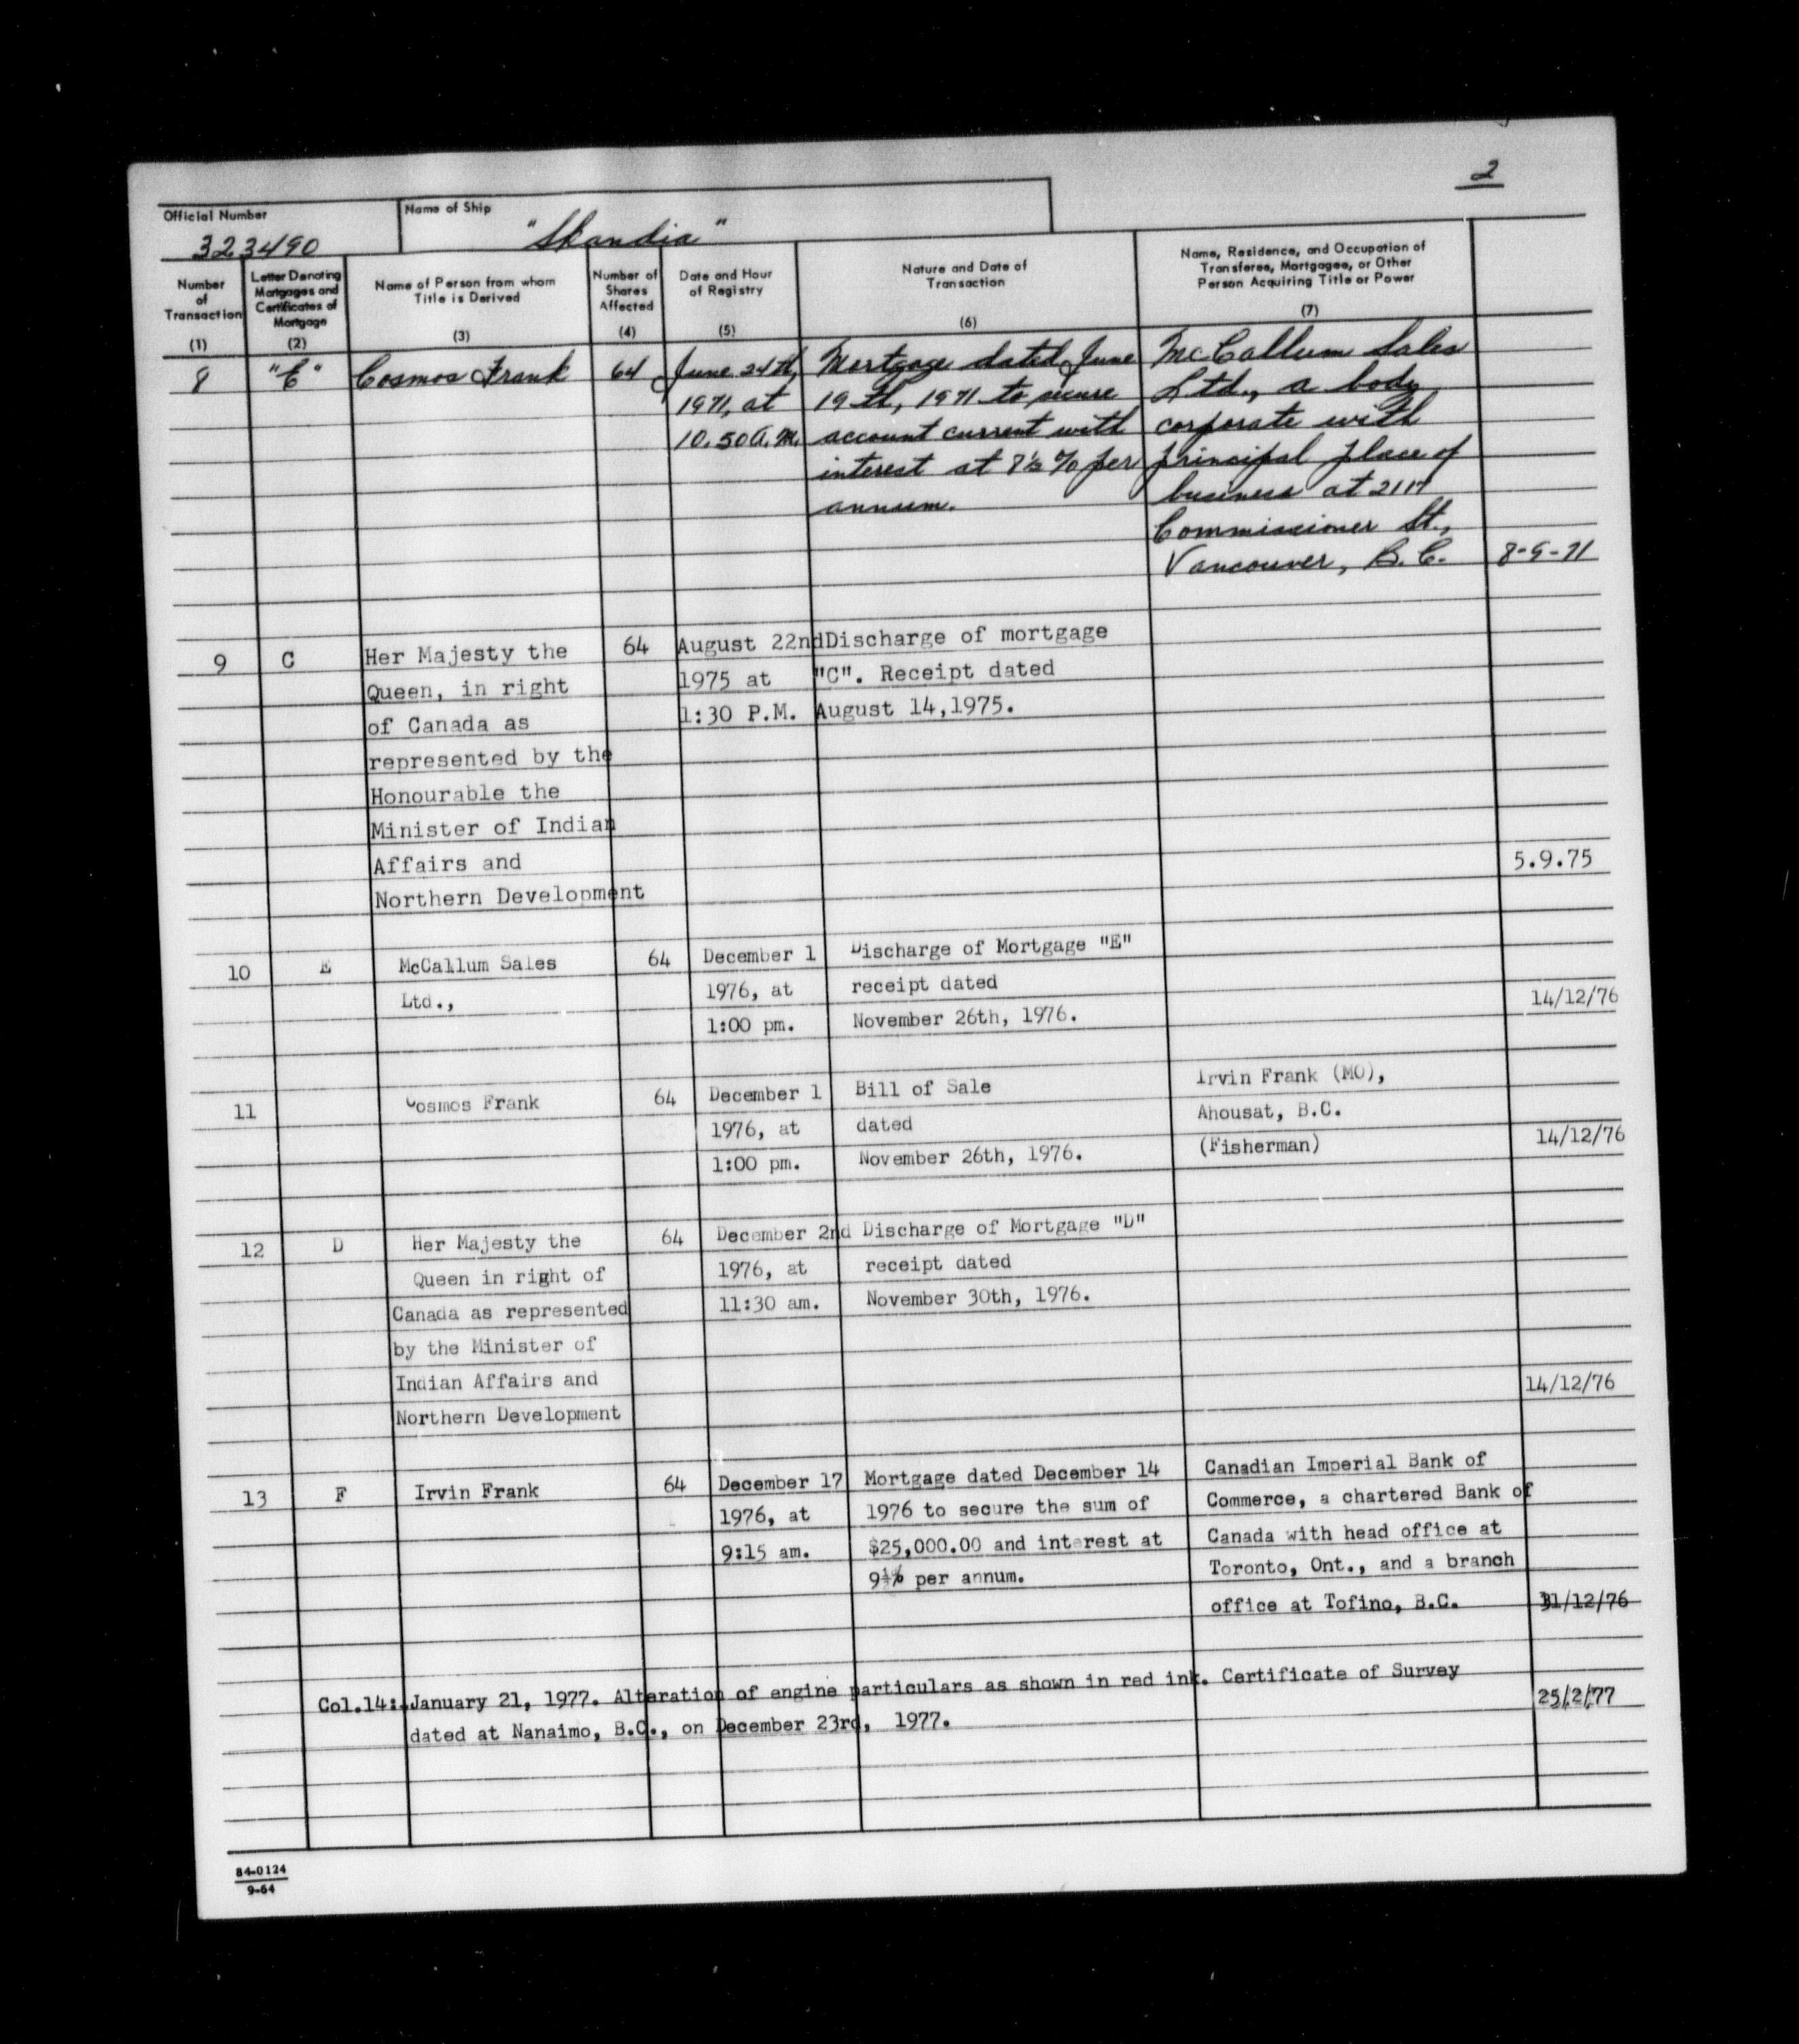 2
Official Number
Name of Ship
323490
"Skandia"
Number of Transaction
Letter Denoting Mortgages and Certificates of Mortgage
Name of Person from whom Title is Derived
Number of Shares Affected
Date and Hour of Registry
Nature and Date of Transaction
Name, Residence, and Occupation of Transferee, Mortgagee, or Other Person Acquiring Title or Power
(1) (2) (3) (4) (5) (6) (7)
8 "E" Cosmos Frank 64 June 24th, Mortgage dated June McCallum Sales
1971, at 19th, 1971 to secure Ltd., a body
10.50 A.M. account current with corporate with
interest at 8½% per principal place of
annum. business at 2117
Commissioner St.,
Vancouver, B.C. 8-9-71
9 C Her Majesty the 64 August 22nd Discharge of mortgage
Queen, in right 1975 at "C". Receipt dated
of Canada as 1:30 P.M. August 14,1975.
represented by the
Honourable the
Minister of Indian
Affairs and 5.9.75
Northern Development
10 E McCallum Sales 64 December 1 Discharge of Mortgage "E"
Ltd., 1976, at receipt dated 14/12/76
1:00 pm. November 26th, 1976.
11 Cosmos Frank 64 December 1 Bill of Sale Irvin Frank (MO),
1976, at dated Ahousat, B.C.
1:00 pm. November 26th, 1976. (Fisherman) 14/12/76
12 D Her Majesty the 64 December 2nd Discharge of Mortgage "D"
Queen in right of 1976, at receipt dated
Canada as represented 11:30 am. November 30th, 1976.
by the Minister of
Indian Affairs and 14/12/76
Northern Development
13 F Irvin Frank 64 December 17 Mortgage dated December 14 Canadian Imperial Bank of
1976, at 1976 to secure the sum of Commerce, a chartered Bank of
9:15 am. $25,000.00 and interest at Canada with head office at
per annum. Toronto, Ont., and a branch
office at Tofino, B.C. 31/12/76
Col.14: January 21, 1977. Alteration of engine particulars as shown in red ink. Certificate of Survey
dated at Nanaimo, B.C., on December 23rd, 1977. 25/2/77
84-0124
9-64